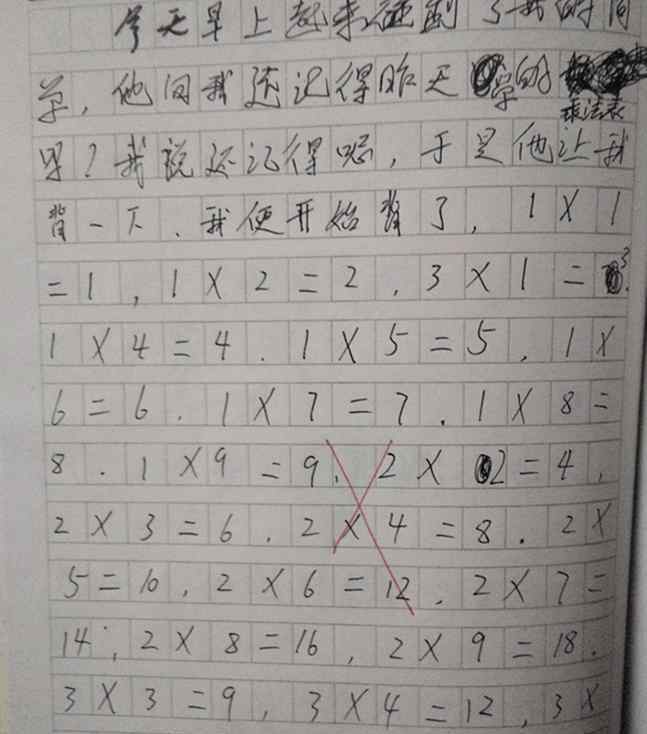 今天早上起来碰到了我的同
学,他问我还记得昨天学的乘法表
吗?我说还记得呢,于是他让我
背一下、我便开始背了,1×1
=1,1×2=2,3×1=3.
1×4=4.1×5=5,1×
6=6.1×7=7.1×8=
8.1×9=9、2×2=4,
2×3=6.2×4=8.2×
5=10,2×6=12.2×7=
14,2×8=16,2×9=18.
3×3=9,3×4=12,3×